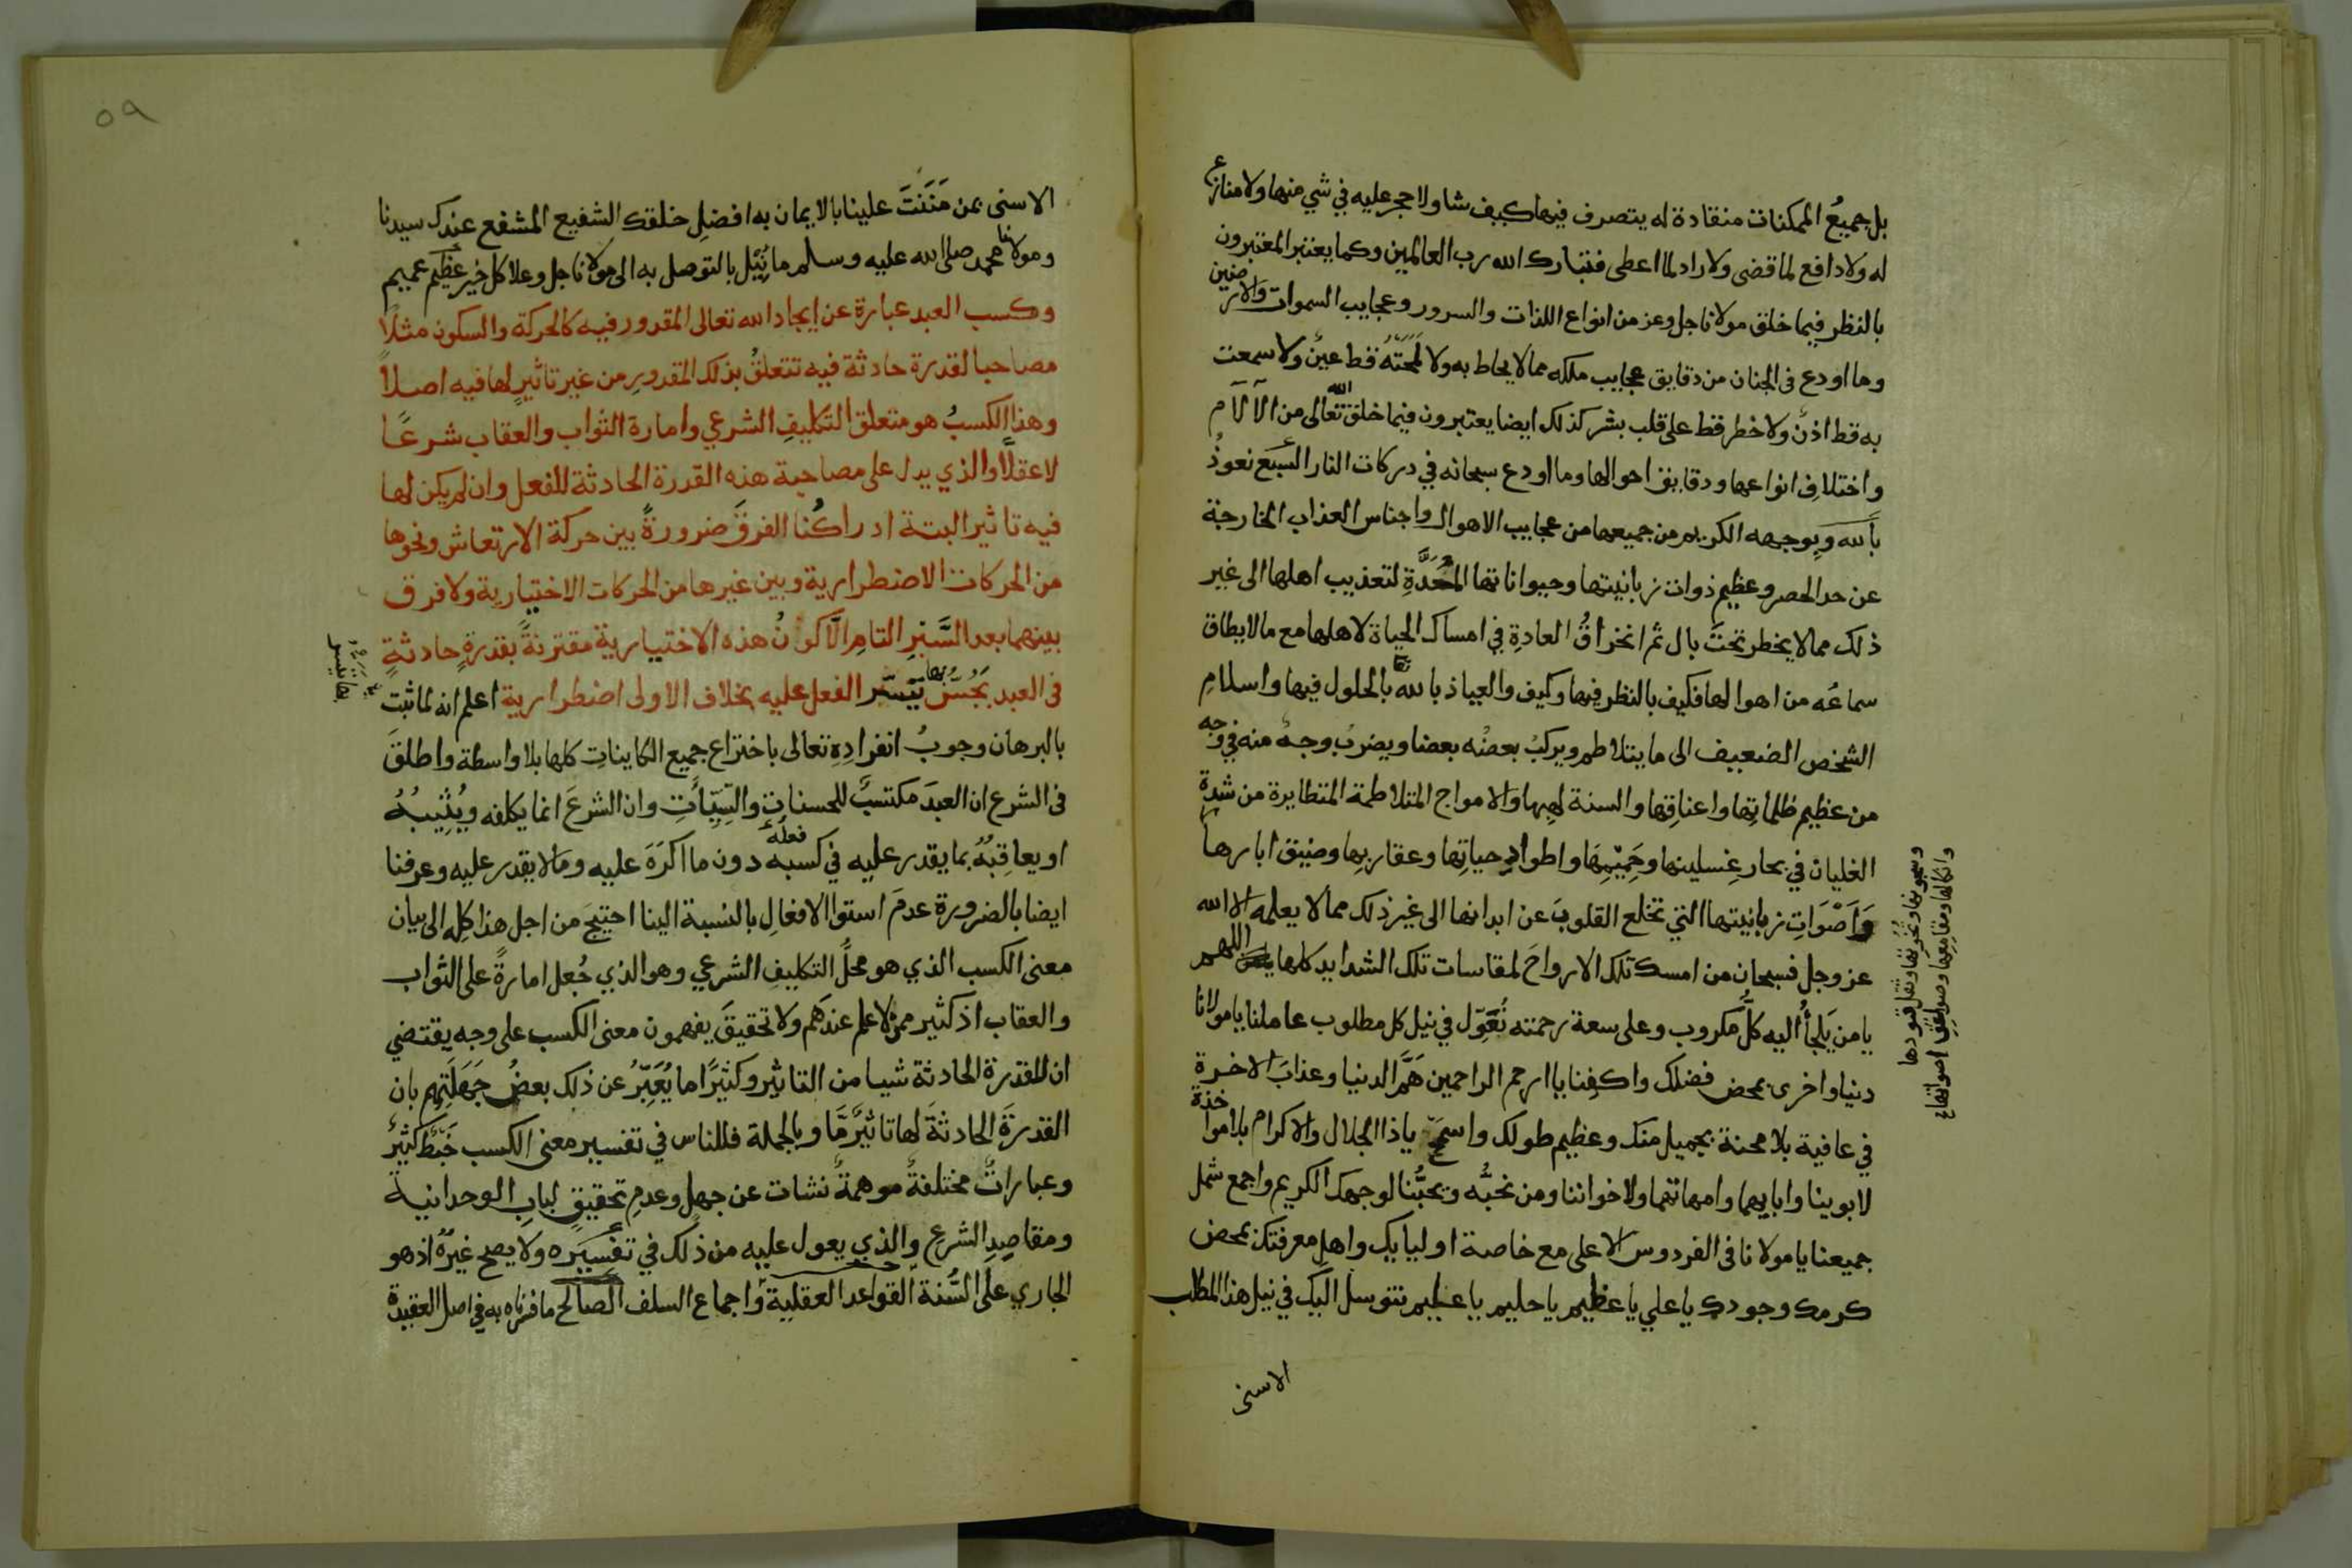 بل جميعُ الممكنات منقادة له يتصرف فيها كيف شا ولا حجر عليه في شي منها ولا منازع
له ولا دافع لما قضى ولا راد لما اعطى فتبارك الله رب العالمين وكما يعتبر المعتبرون
بالنظر فيما خلق مولانا جل وعز من انواع اللذات والسرور وعجايب السموات والارضين
وما اودع في الجنان من دقايق عجايب ملكه مما لا يحاط به ولا لمحَتْهُ قط عينٌ ولا سمعت
به قط اذنٌ ولا خطر قط على قلب بشر كذلك ايضا يعتبرون فيما خلق الله تعالى من الآلام
واختلافِ انواعها ودقايق احوالها وما اودع سبحانه في دركات النار السبع نعوذُ
بالله وبوجهه الكريم من جميعها من عجايب الاهوال واجناس العذاب الخارجة
عن حد الحصر وعظيم ذوات زبانيتها وحيواناتها المُعَدَّةِ لتعذيب اهلها الى غير
ذلك مما لا يخطر تحتَ بال ثم انخراقُ العادةِ في امساك الحياة لاهلها مع ما لا يطاق
سماعُه من اهوالها فكيف بالنظر فيها وكيف والعياذ بالله تعا بالحلول فيها واسلامِ
الشخص الضعيف الى ما يتلاطم ويركبُ بعضُه بعضا ويضربُ وجهٌ منه في وجه
من عظيم ظلماتِها واعناقِها والسنة لهبِها والامواج المتلاطمة المتطايرة من شدة
الغليان في بحار غِسلينها وحَمِيْمِهَا واطوادِ حياتِها وعقاربِها وضيق ابارها
وَأصْوَاتِ زبانيتها التي تخلع القلوبَ عن ابدانها الى غير ذلك مما لا يعلمه الا الله
عز وجل فسبحان من امسك تلك الارواحَ لمقاسات تلك الشدايد كلها اللهم
يا من يَلجأُ اليه كلُّ مكروب وعلى سعة رحمته نُعَوِّل في نيل كل مطلوب عاملنا يا مولانا
دنيا واخرى بمحض فضلك واكفِنا يا ارحم الراحمين هَمَّ الدنيا وعذابَ الاخرة
في عافية بلا محنة بجميل منك وعظيم طولك واسمَحْ يا ذا الجلال والاكرام بلا مواخذة
لابوينا وابايهما وامهاتهما ولاخواننا ومن نحبُّه ويحبُّنا لوجهك الكريم واجمع شمل
جميعنا يا مولانا في الفردوس الاعلى مع خاصة اوليايك واهلِ معرفتك بمحض
كرمك وجودك يا علي يا عظيم يا حليم يا عظيم نتوسل اليك في نيل هذا المطلب
الاسنى
وسجونها وثقل قيودها
وانكالها ومقامعها وصواعق اصواتها
٥٩
الاسنى بمن مَنَنتَ علينا بالايمان به افضلِ خلقك الشفيع المشفع عندك سيدنا
ومولانا محمد صلى الله عليه وسلم ما نُيِّل بالتوصل به الى مولانا جل وعلا كل خير عظيم عميم
وكسب العبد عبارة عن ايجاد الله تعالى المقدور فيه كالحركة والسكون مثلًا
مصاحبا لقدرة حادثة فيه تتعلقُ بذلك المقدورِ من غير تاثيرٍ لها فيه اصلاً
وهذا الكسبُ هو متعلق التكليفِ الشرعي وامارة الثواب والعقاب شرعًا
لا عقلًا والذي يدل على مصاحبة هذه القدرة الحادثة للفعل وان لم يكن لها
فيه تاثير البتة ادراكُنا الفرقَ ضرورةً بين حركة الارتعاش ونحوها
من الحركات الاضطرارية وبين غيرها من الحركات الاختيارية ولا فرق
بينهما بعد السَّبْرِ التامِ الَّا كونُ هذه الاختيارية مقترنةً بقدرةٍ حادثةٍ
في العبد يَحُسّ بها تَيَسّر الفعل عليه بخلاف الاولى اضطرارية اعلم انه لما ثبت
بها تيسر
بالبرهان وجوبُ انفرادِهِ تعالى باختراع جميع الكاينات كلها بلا واسطة واطلقَ
في الشرع ان العبدَ مكتسبٌ للحسنات والسيِّأتِ وان الشرعَ انما يكلفه ويُثِيبُهُ
او يعاقِبُهُ بما يقدر عليه في كسبه فعله دون ما اكرَهَ عليه وما لا يقدر عليه وعرفنا
ايضا بالضرورة عدمَ استوا الافعالِ بالنسبة الينا احتيجَ من اجل هذا كلِه الى بيان
معنى الكسب الذي هو محلُّ التكليفِ الشرعي وهو الذي جُعل امارةً على الثواب
والعقاب اذ كثير ممن لا علم عندهم ولا تحقيقَ يفهمون معنى الكسب على وجه يقتضي
ان للقدرة الحادثة شيا من التاثير وكثيرًا ما يُعَبِّرُ عن ذلك بعضُ جَهَلَتِهِم بان
القدرةَ الحادثةَ لها تاثيرٌ مَّا وبالجملة فللناس في تفسير معنى الكسب خَبْطٌ كثيرٌ
وعباراتٌ مختلفةٌ موهمةٌ نشات عن جهلٍ وعدمِ تحقيقٍ لبابِ الوحدانية
ومقاصِدِ الشرع والذي يعول عليه من ذلك في تفسيَره ولا يصح غيرُه اذ هو
الجاري على السُّنة القواعد العقلية واجماع السلف الصالح ما فسرناه به في اصل العقيدة